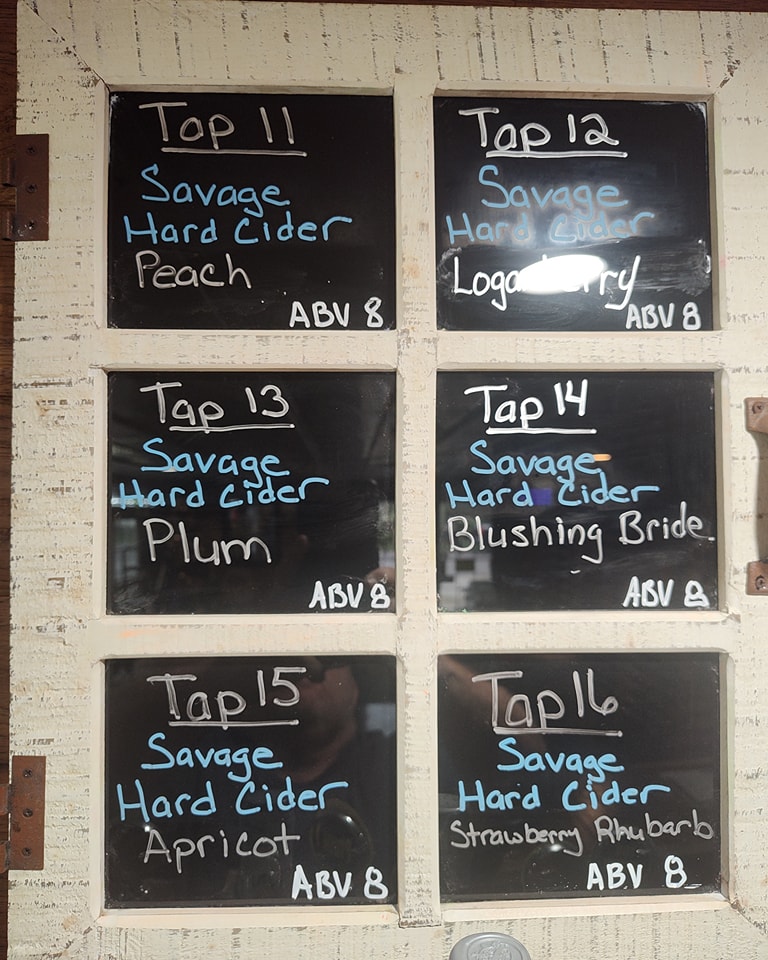 Tap 11
Savage
Hard Cider
Peach
ABV 8
Tap 12
Savage
Hard Cider
ABV 8
Tap 13
Savage
Hard Cider
Plum
ABV 8
Tap 14
Savage
Hard Cider
Blushing Bride
ABV 8
Tap 15
Savage
Hard Cider
Apricot
ABV 8
Tap 16
Savage
Hard Cider
Strawberry Rhubarb
ABV 8